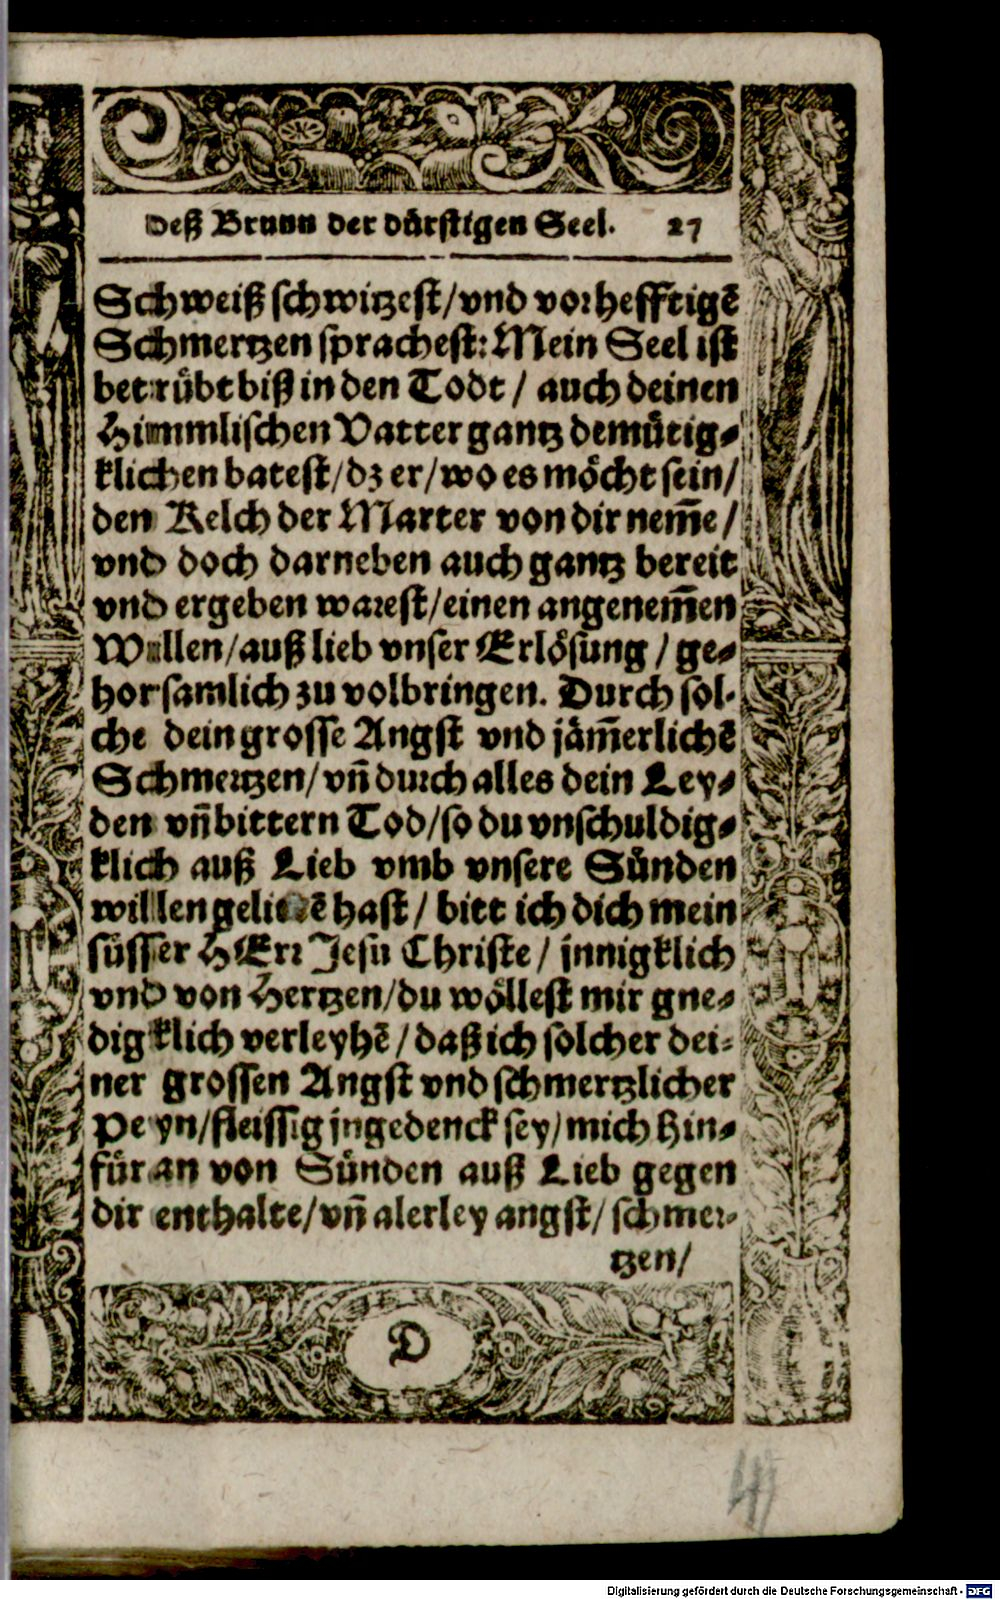 deß Brunn der dürstigen Seel. 27
Schweiß schwitzest/vnd vor hefftigē
Schmertzen sprachest: Mein Seel ist
betrübt biß in den Todt / auch deinen
Himmlischen Vatter gantz demütig-
klichen batest/dz er/wo es möcht sein/
den Kelch der Marter von dir nem̄e/
vnd doch darneben auch gantz bereit
vnd ergeben warest/einen angenem̄en
Willen/auß lieb vnser Erlösung / ge-
horsamlich zu volbringen. Durch sol-
che dein grosse Angst vnd jäm̄erlichē
Schmertzen/vn̄ durch alles dein Ley-
den vn̄ bittern Tod/so du vnschuldig-
klich auß Lieb vmb vnsere Sünden
willen gelittē hast / bitt ich dich mein
süsser HErr Jesu Christe / jnnigklich
vnd von Hertzen/du wöllest mir gne-
digklich verleyhē / daß ich solcher dei-
ner grossen Angst vnd schmertzlicher
Peyn/fleissig jngedenck sey/mich hin-
für an von Sünden auß Lieb gegen
dir enthalte/vn̄ alerley angst/ schmer-
tzen/
D
Digitalisierung gefördert durch die Deutsche Forschungsgemeinschaft - DFG